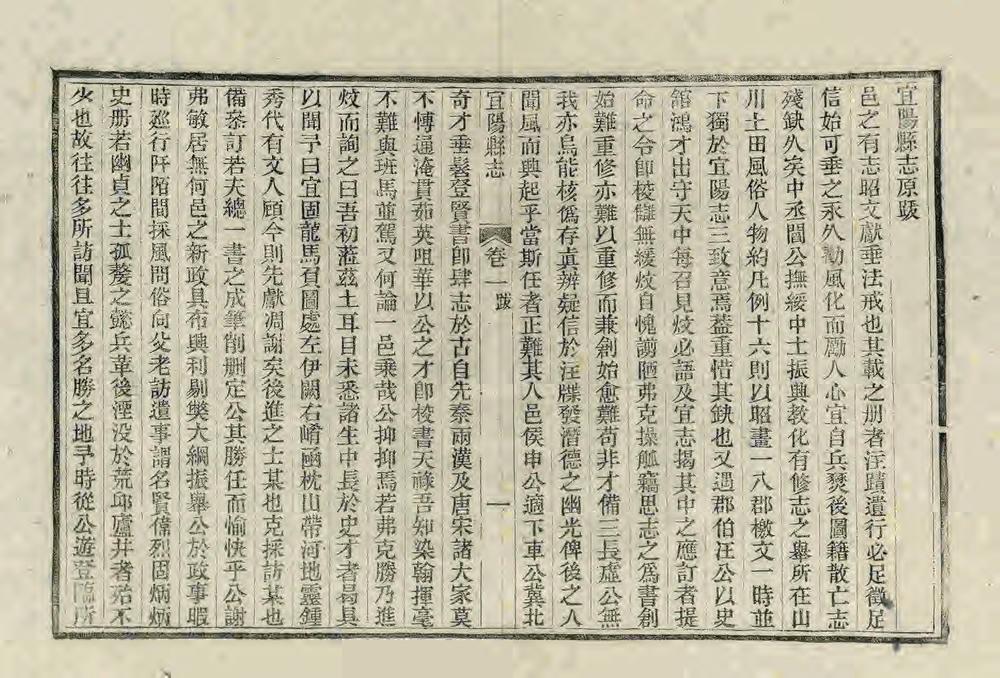 宜陽縣志原跋
邑之有志昭文獻垂法戒也其載之册者注蹟遺行必足徵足
信始可垂之永久勵風化而勵人心宜自兵燹後圖籍散亡志
殘缺久矣中丞閻公撫綏中土振興教化有修志之舉所在山
川土田風俗人物約凡例十六則以昭畫一八郡檄文一時並
下獨於宜陽志三致意焉蓋重惜其缺也又遇郡伯汪公以史
舘鴻才出守天中每召見炆必語及宜志揭其中之應訂者提
命之令卽梭讎無緩炆自愧謭陋弗克操觚竊思志之爲書創
始難重修亦難以重修而兼創始愈難苟非才備三長虛公無
我亦烏能核僞存眞辨疑信於汪牒發潛德之幽光俾後之人
聞風而興起乎當斯任者正難其人邑侯申公適下車公冀北
宜陽縣志
卷一
跋
一
奇才垂髫登賢書卽肆志於古自先秦兩漢及唐宋諸大家莫
不愽通淹貫茹英咀華以公之才卽梭書天祿吾知染翰揮毫
不難與班馬並駕又何論一邑乗哉公抑抑焉若弗克勝乃進
炆而詢之曰吾初蒞茲土耳目未悉諸生中長於史才者曷具
以聞予曰宜固龍馬負圖處左伊闕右崤函枕山帶河地靈鍾
秀代有文人顧今則先獻凋謝矣後進之士某也克採訪某也
備叅訂若夫總一書之成筆削删定公其勝任而愉快乎公謝
弗敏居無何邑之新政具布興利剔獘大綱振舉公於政事暇
時廵行阡陌間採風問俗向父老訪遺事謂名賢偉烈固炳炳
史册若幽貞之士孤嫠之懿兵革後湮没於荒邱廬井者殆不
少也故往往多所訪聞且宜多名勝之地予時從公遊登臨所